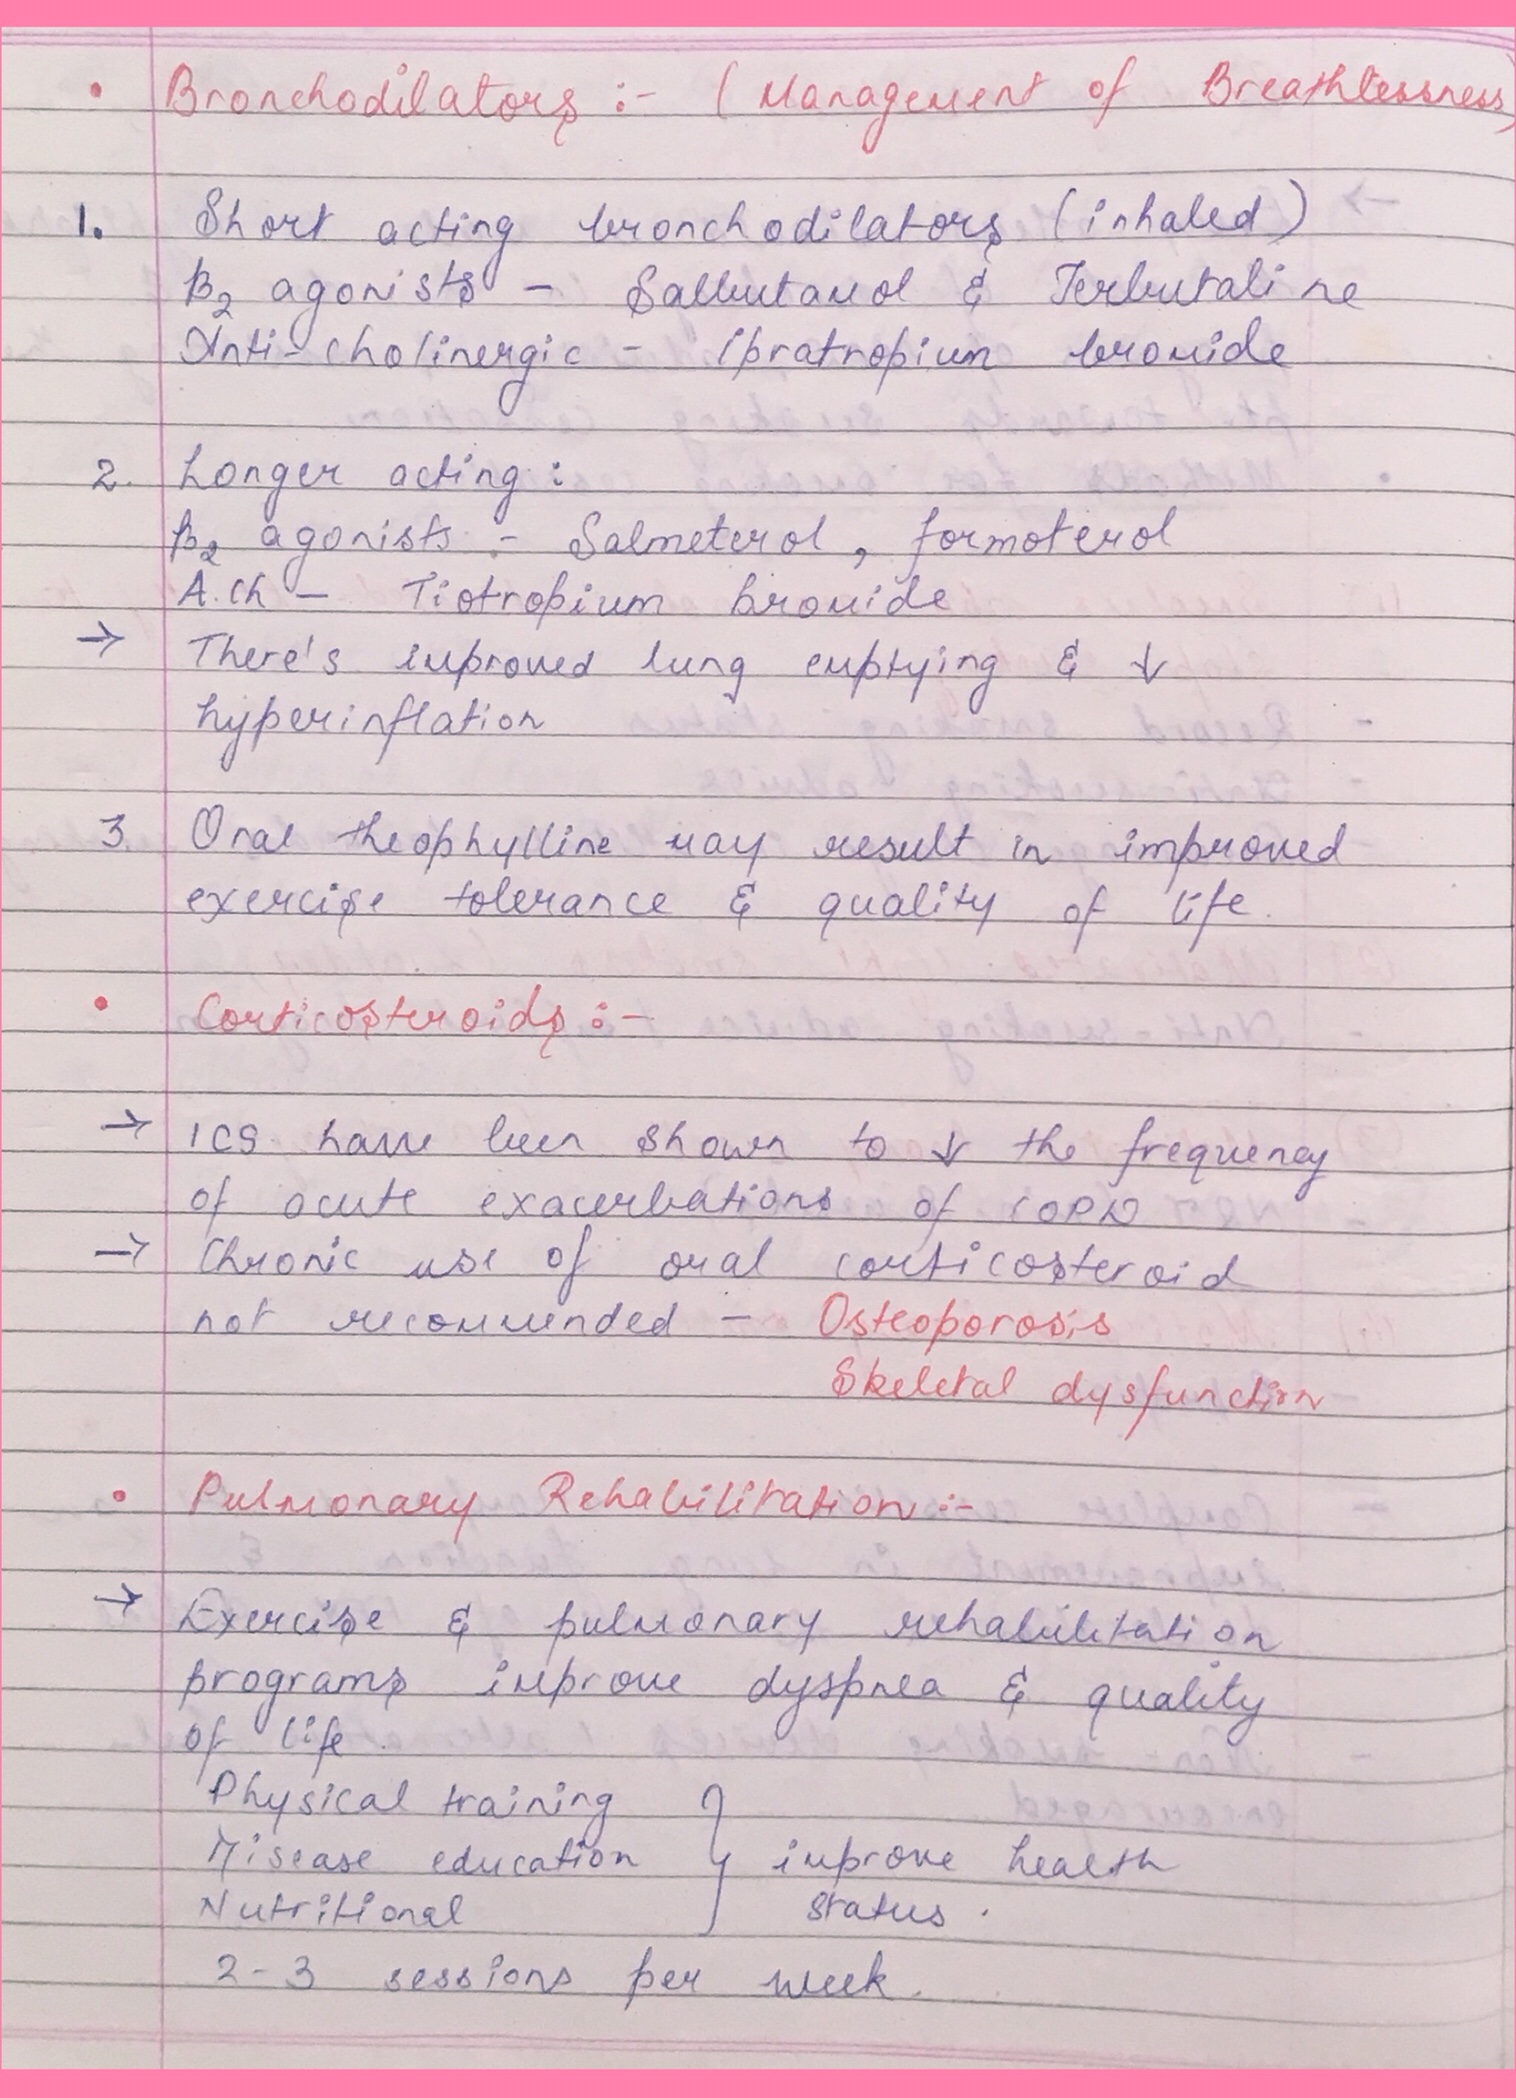 • Bronchodilators :- (Management of Breathlessness)
1. Short acting bronchodilators (inhaled)
B2 agonists - Salbutamol & Terbutaline
Anti-cholinergic - Ipratropium bromide
2. Longer acting :
B2 agonists - Salmeterol, formoterol
A.Ch - Tiotropium bromide
→ There's improved lung emptying & ↓
hyperinflation
3. Oral theophylline may result in improved
exercise tolerance & quality of life.
• Corticosteroids :-
→ ICS have been shown to ↓ the frequency
of acute exacerbations of COPD
→ Chronic use of oral corticosteroid
not recommended - Osteoporosis
Skeletal dysfunction
• Pulmonary Rehabilitation :-
→ Exercise & pulmonary rehabilitation
programs improve dyspnea & quality
of life.
Physical training
Disease education } improve health
Nutritional status.
2-3 sessions per week.